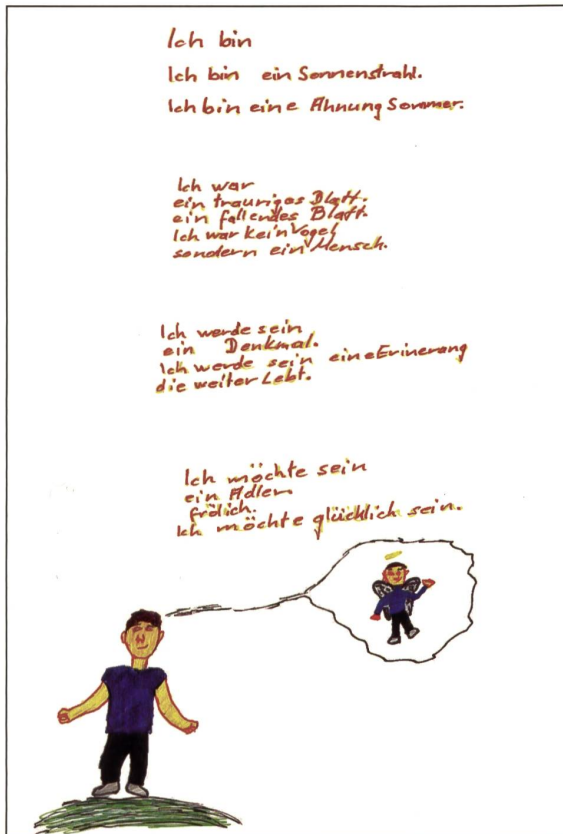 Ich bin
Ich bin ein Sonnenstrahl.
Ich bin eine Ahnung Sommer.
Ich war
ein trauriges Blatt.
ein fallendes Blatt.
Ich war kein Vogel
sondern ein Mensch.
Ich werde sein
ein Denkmal.
Ich werde sein eine Erinerang
die weiter Lebt.
Ich möchte sein
ein Adler
frölich.
Ich möchte glücklich sein.